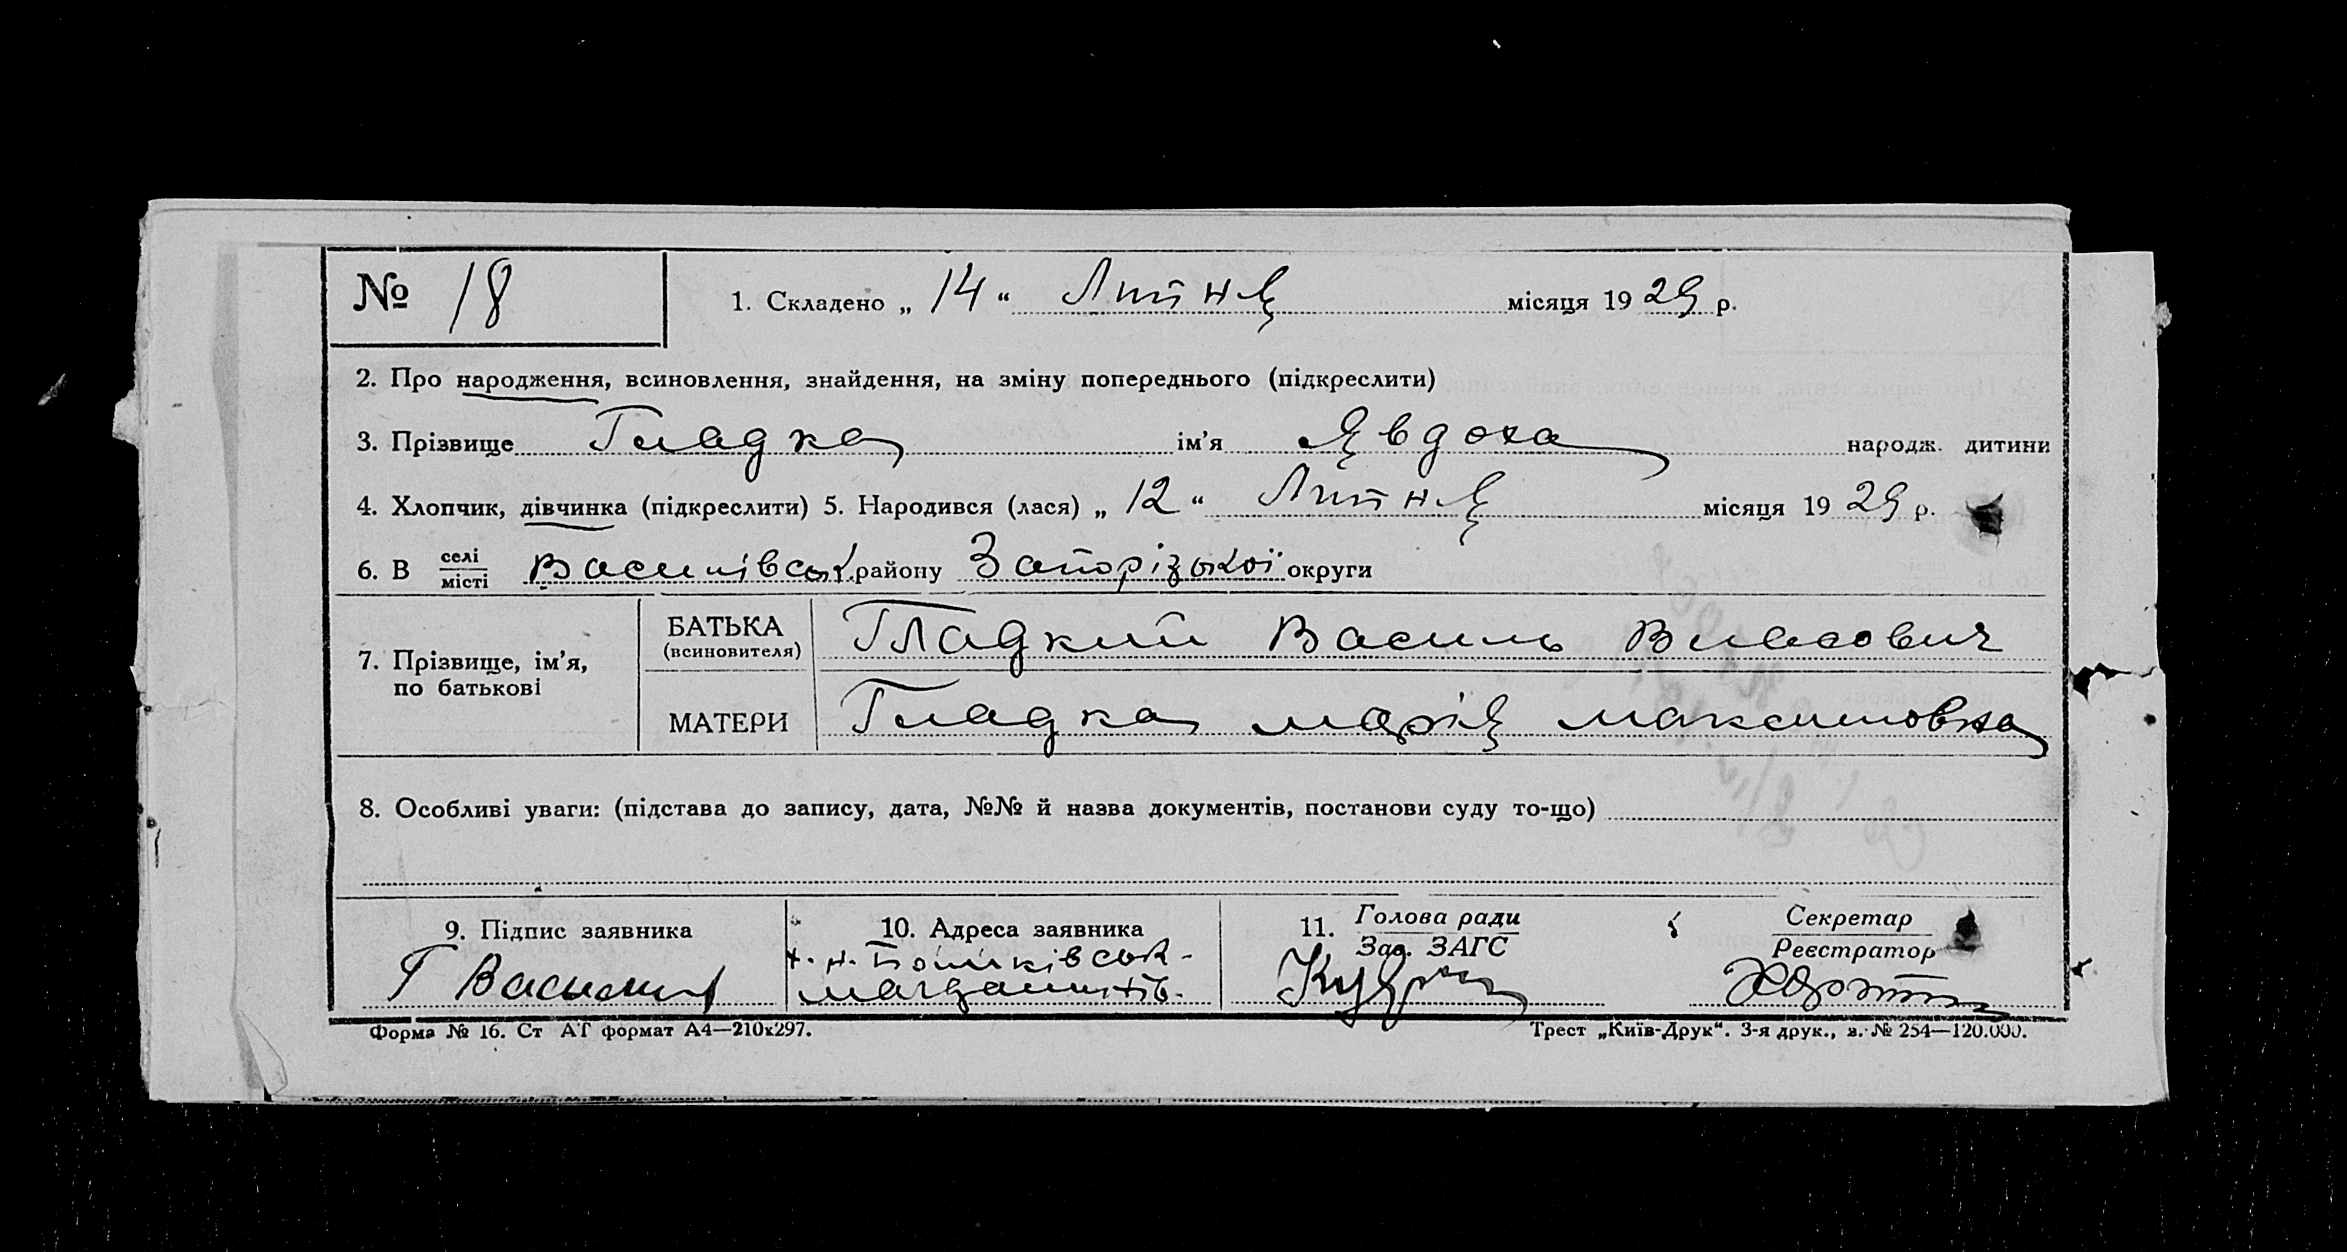 № 18
1. Складено „ 14 “ Липня місяця 1929 р.
2. Про народження, всиновлення, знайдення, на зміну попереднього (підкреслити)
3. Прізвище Гладка ім’я Явдоха народж. дитини
4. Хлопчик, дівчинка (підкреслити) 5. Народився (лася) „ 12 “ Липня місяця 1929 р.
6. В селі
місті Василівськ. району Запорізької округи
7. Прізвище, ім’я,
по батькові
БАТЬКА
(всиновителя)
Гладкий Василь Власович
МАТЕРИ
Гладка марія максимовна
8. Особливі уваги: (підстава до запису, дата, №№ й назва документів, постанови суду то-що)
9. Підпис заявника
Г
10. Адреса заявника
11. Голова ради
Зав. ЗАГС
Секретар
Реєстратор
Форма № 16. Ст АТ формат А4—210х297.
Трест „Київ-Друк“. 3-я друк., з. № 254—120.000.